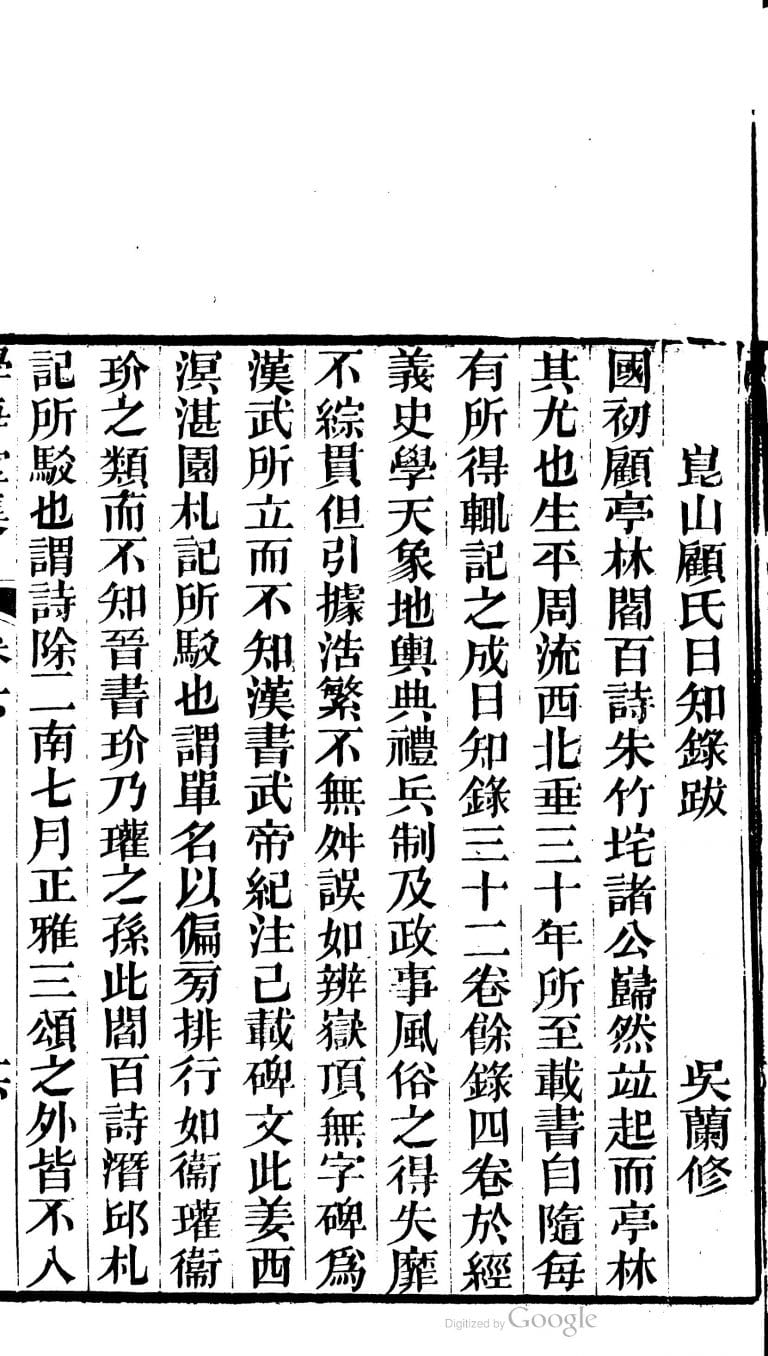 崑山顧氏日知錄跋　吳蘭修
國初顧亭林閻百詩朱竹垞諸公巋然竝起而亭林
其尤也生平周流西北垂三十年所至載書自隨每
有所得輒記之成日知錄三十二卷餘錄四卷於經
義史學天象地輿典禮兵制及政事風俗之得失靡
不綜貫但引據浩繁不無舛誤如辨嶽頂無字碑爲
漢武所立而不知漢書武帝紀注已載碑文此姜西
溟湛園札記所駁也謂單名以偏旁排行如衞瓘衞
玠之類而不知晉書玠乃瓘之孫此閻百詩潛邱札
記所駁也謂詩除二南七月正雅三頌之外皆不入
Digitized by Google